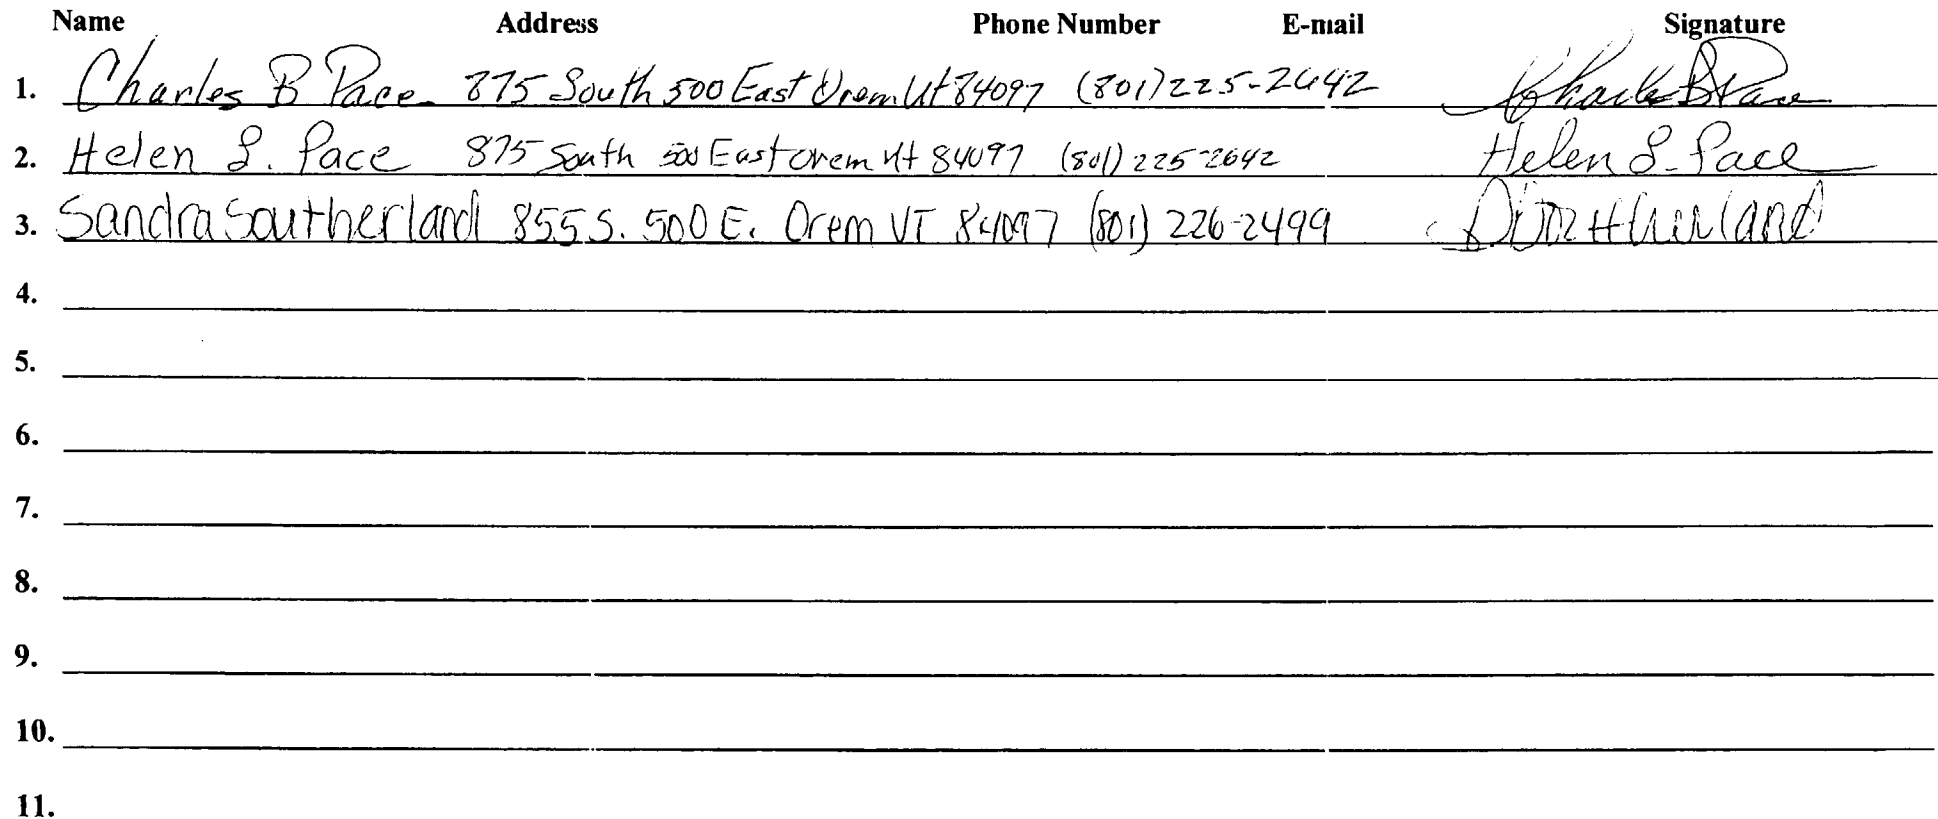 Name Address Phone Number E-mail Signature
1. Charles B Pace 875 South 500 East Orem Ut 84097 (801) 225-2642 Charles B Pace
2. Helen L. Pace 875 South 500 East Orem Ut 84097 (801) 225-2642 Helen L. Pace
3. Sandra Southerland 855 S. 500 E. Orem UT 84097 (801) 226-2499
4.
5.
6.
7.
8.
9.
10.
11.